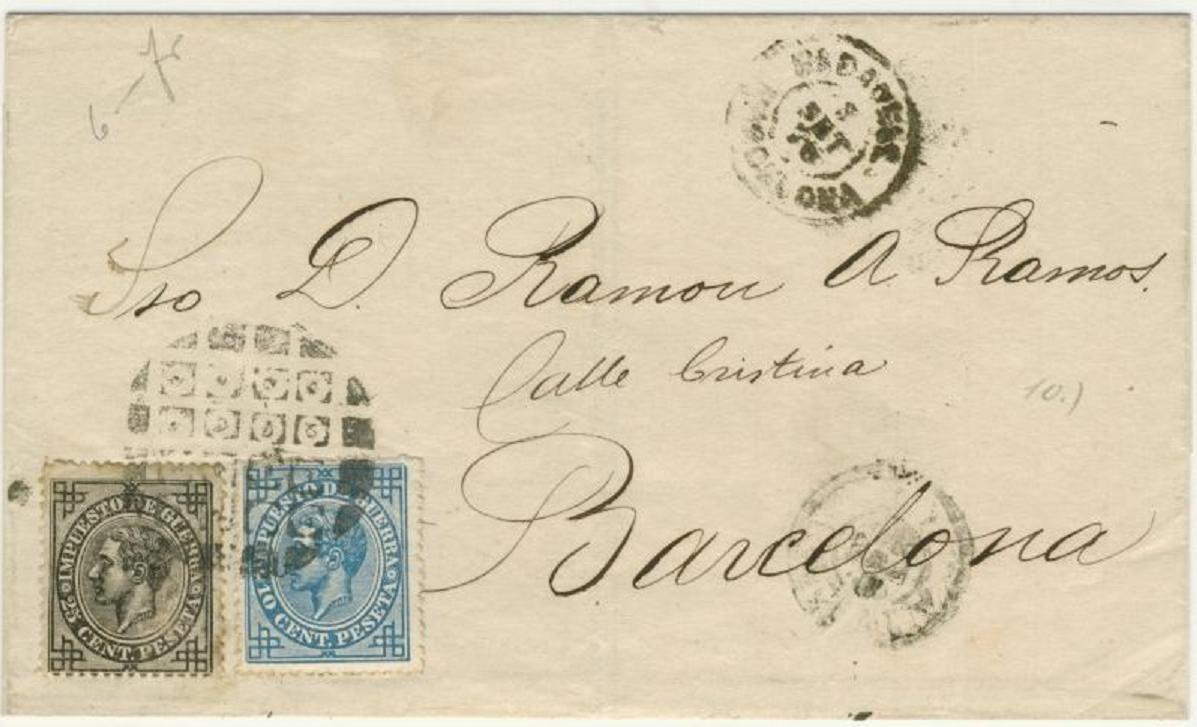 6
BADALONA
SET
76
Sro D. Ramon A. Ramos.
Calle Cristina
10.)
Barcelona
IMPUESTO DE GUERRA
25 CENT. PESETA
IMPUESTO DE GUERRA
10 CENT. PESETA